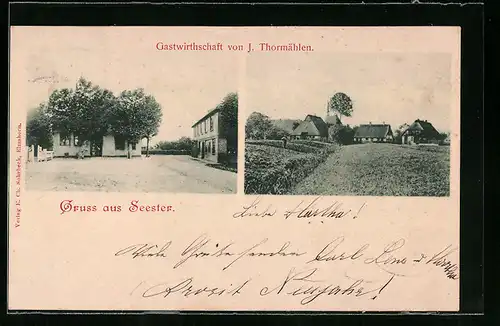 Gastwirthschaft von J. Thormählen.
Verlag E. Ch. Schirbeck, Elmshorn.
Gruss aus Seester.
Liebe Martha!
Viele Grüße senden Carl, Lene &
Prosit Neujahr!